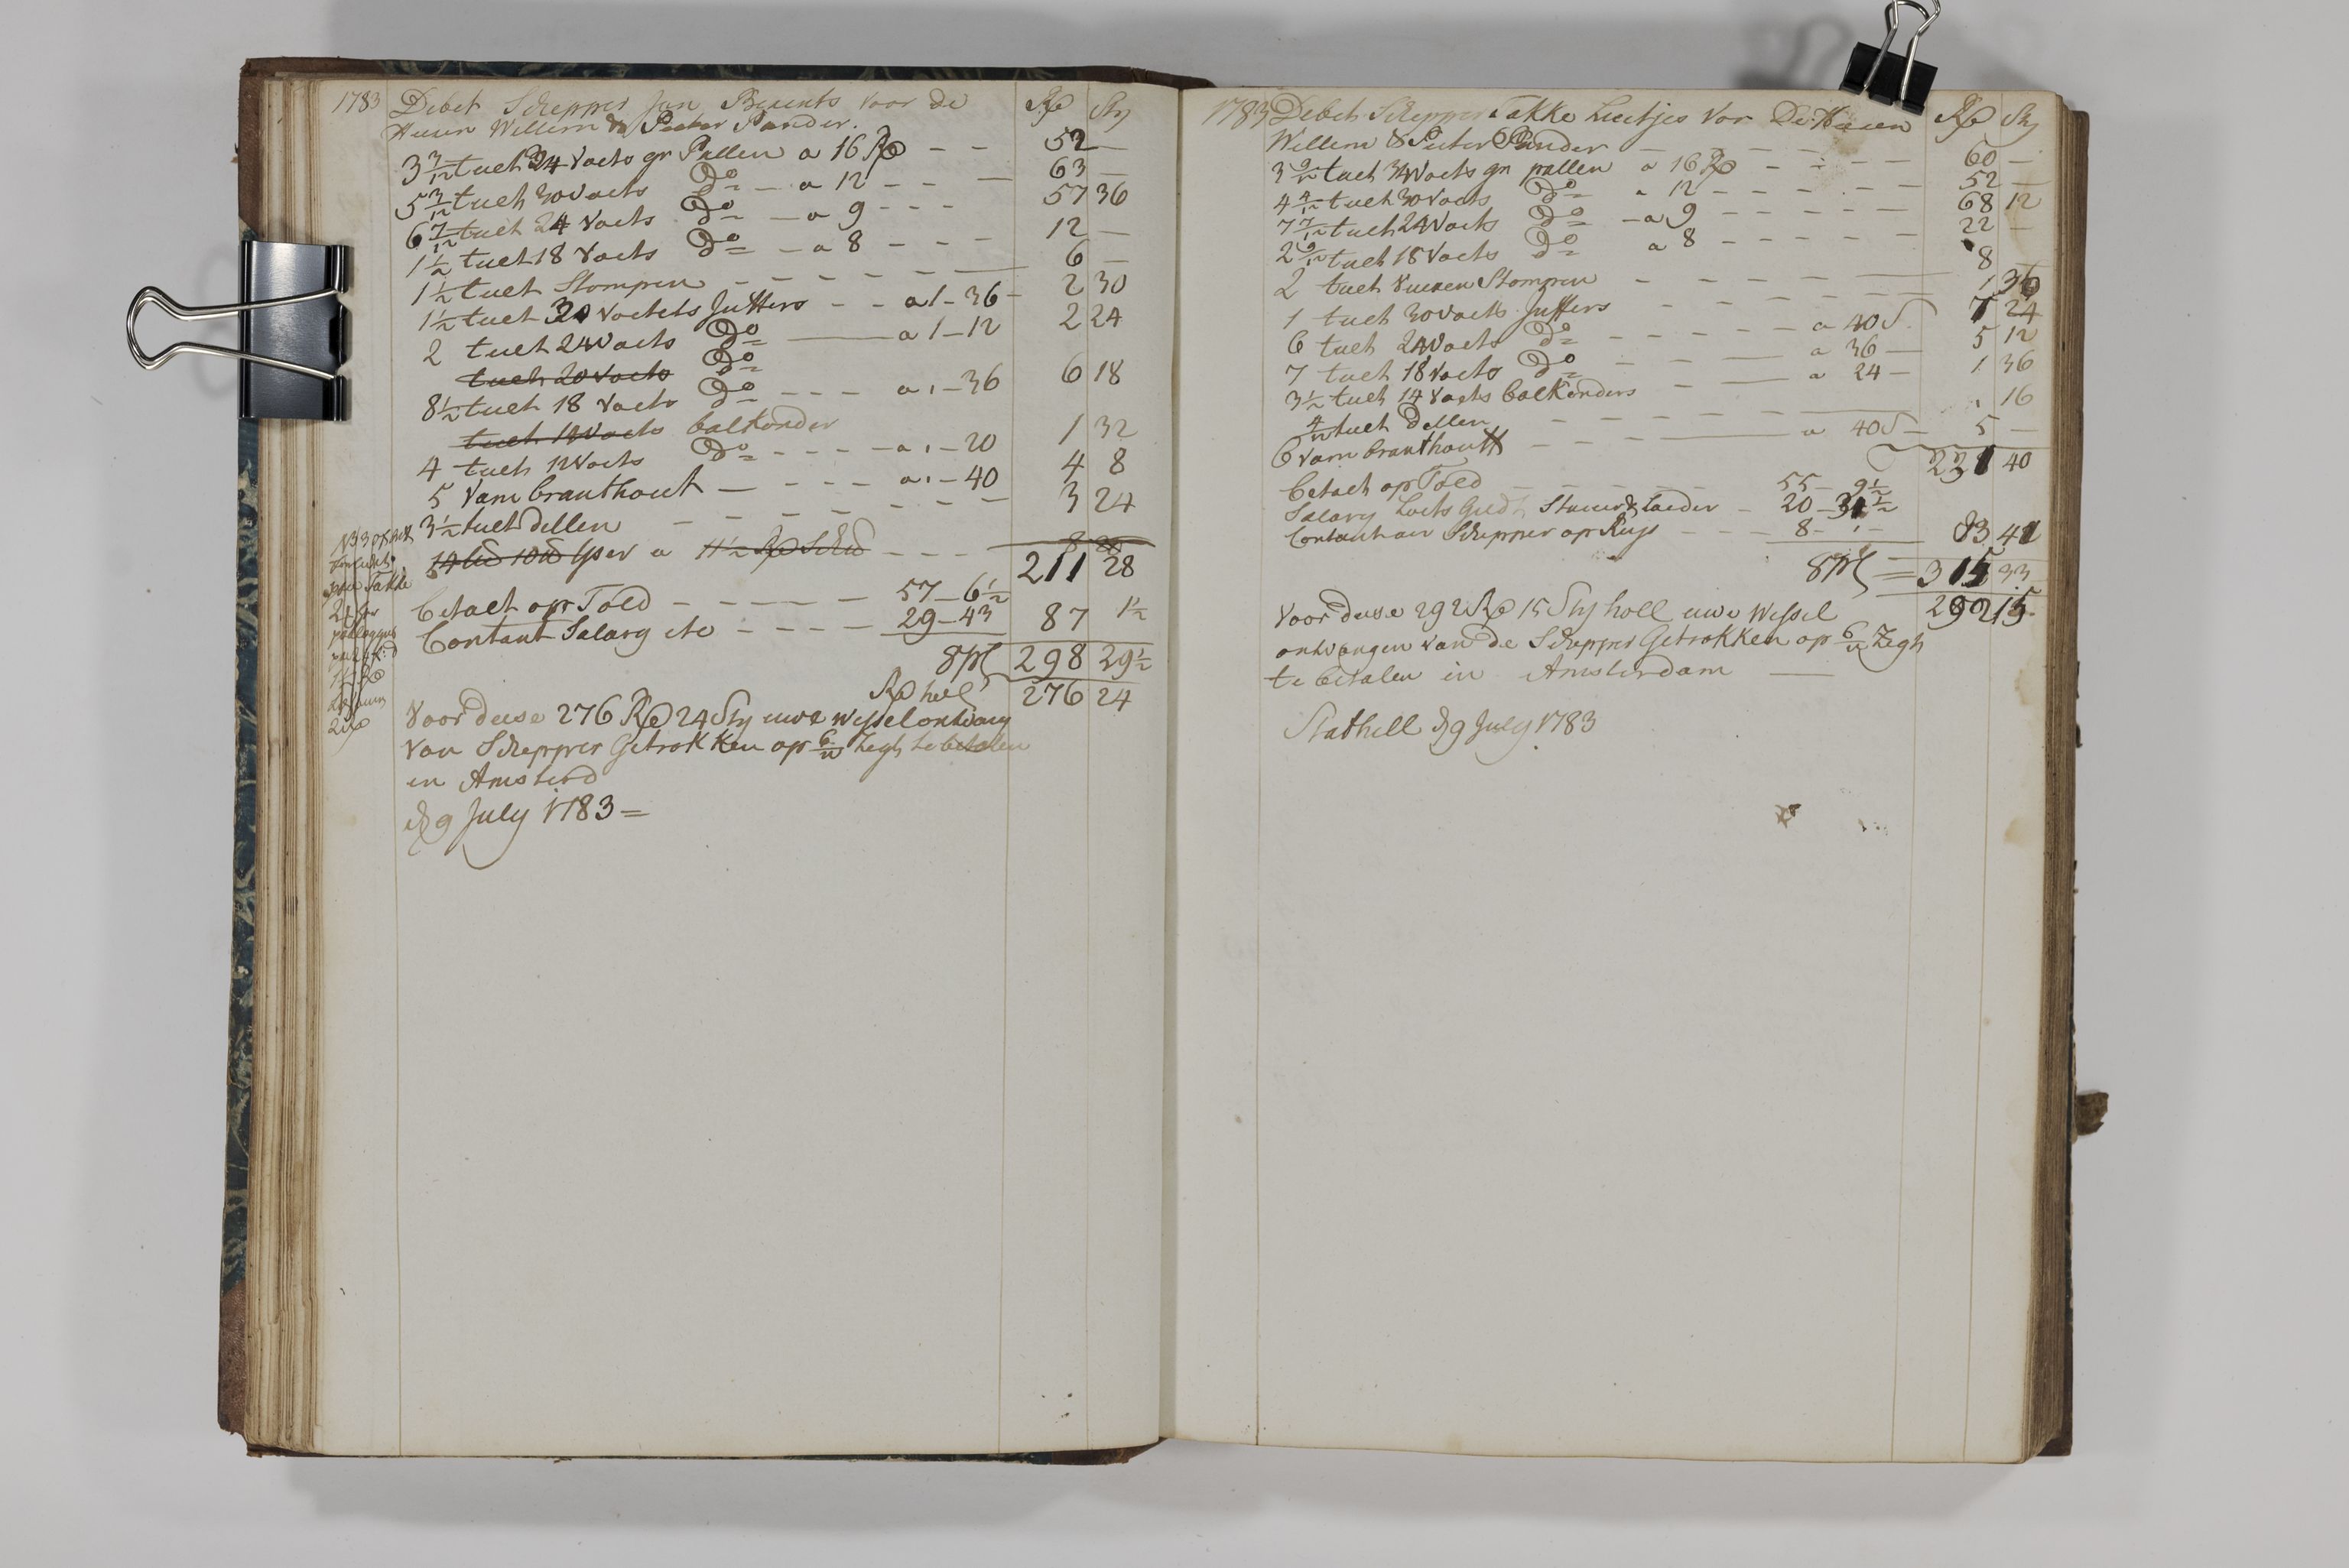 1783 Debet Schepper Jan Berents voor de Rd Sty
Heeren Willem & Pieter Pander.
3 3/12 tuelt 34 Voets gr Pallen a 16 Rd - - 52 —
5 3/12 tuelt 30 Voets Do — a 12 - - — 63 —
6 7/12 tuelt 24 Voets Do — a 9 - - - 57 36
1 1/2 tuelt 18 Voets Do — a 8 - - - 12 —
1 1/2 tuelt Stompen - - - - - — 6 —
1 1/2 tuelt 30 Voets Juffers - - a 1 - 36 - 2 30
2 tuelt 24 Voets Do — a 1 - 12 2 24
tuelt 20 Voets Do
8 1/2 tuelt 18 Voets Do - - - a , - 36 6 18
tuelt 18 Voets balkender
4 tuelt 12 Voets Do - - - - a , - 20 1 32
5 Vam branthout — - - - a , - 40 4 8
3 1/2 tuelt dellen - - - - - - - 3 24
Yser a 11 1/2 Rd - - -
211 28
betaelt op Told - - - - - 57 - 6 1/2
Contant Salary etc - - - - 29 - 43 87 1 1/2
298 29 1/2
Rd holl 276 24
Voor dese 276 Rd 24 Sty uwe wessel ontvang
van Schepper Getrokken op 6/w Zegh te betalen
in Amsterd
d 9 July 1783 =
1783 Debet Schepper Takke Luitjes Vor De Heeren Rd Sty
Willem & Pieter Pander
3 9/12 tuelt 34 Voets gr pallen a 16 Rd - - - - 60 —
4 4/12 tuelt 30 Voets Do a 12 - - - - - 52 —
7 7/12 tuelt 24 Voets Do - a 9 - - - - - 68 12
2 9/12 tuelt 18 Voets Do a 8 - - - - - 22 —
2 tuelt Vueren Stompen - - - — 8 —
1 tuelt 30 Voets Juffers - - - - - — 1 36
6 tuelt 24 Voets Do - - - - - a 40 S. 7 24
7 tuelt 18 Voets Do - - - — a 36 — 5 12
3 1/2 tuelt 14 Voets balkenders - — a 24 — 1 36
4/12 tuelt dellen - - - - — , 16
6 Vam branthout - - - — a 40 S — 5 —
231 40
betaelt op Told - - - - 55 - 9 1/2
Salary Loets Geld Stuer & Laeder - 20 - 31 1/2
Contant aen Schepper op Rijs - - - 8 - , - 83 41
315 33
292 15
Voor dese 292 Rd 15 Sty holl uwe Wessel
ontvangen van de Schepper Getrokken op 6/w Zegh
te betalen in Amsterdam —
Stathell d 9 July 1783